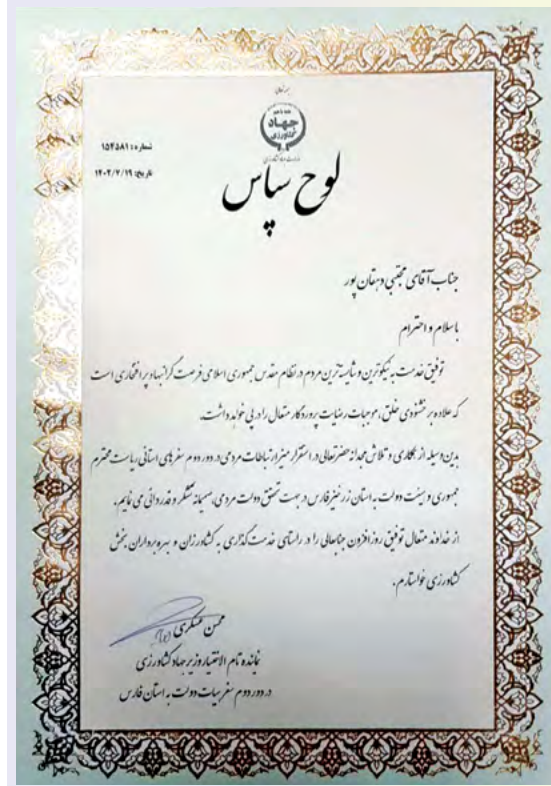 جهاد
کشاورزی
شماره: ۱۵۴۵۸۱
تاریخ: ۱۴۰۲/۷/۱۹
لوح سپاس
جناب آقای مجتبی دهقان پور
باسلام و احترام
توفیق خدمت به نیکوترین و شایسته‌ترین مردم در نظام مقدس جمهوری اسلامی فرصت گرانبهاء و پر افتخاری است
که علاوه بر خشنودی خلق، موجبات رضایت پروردگار متعال را در پی خواهد داشت.
بدین وسیله از همکاری و تلاش مجدانه حضرتعالی در استقرار میز ارتباطات مردمی در دور دوم سفرهای استانی ریاست محترم
جمهوری و هیئت دولت به استان زرخیز فارس در جهت تحقق دولت مردمی، صمیمانه تشکر و قدردانی می نمایم.
از خداوند متعال توفیق روزافزون جنابعالی را در راستای خدمت گذاری به کشاورزان و بهره برداران بخش
کشاورزی خواستارم.
محسن عسکری
نماینده تام الاختیار وزیر جهاد کشاورزی
در دور دوم سفر هیات دولت به استان فارس